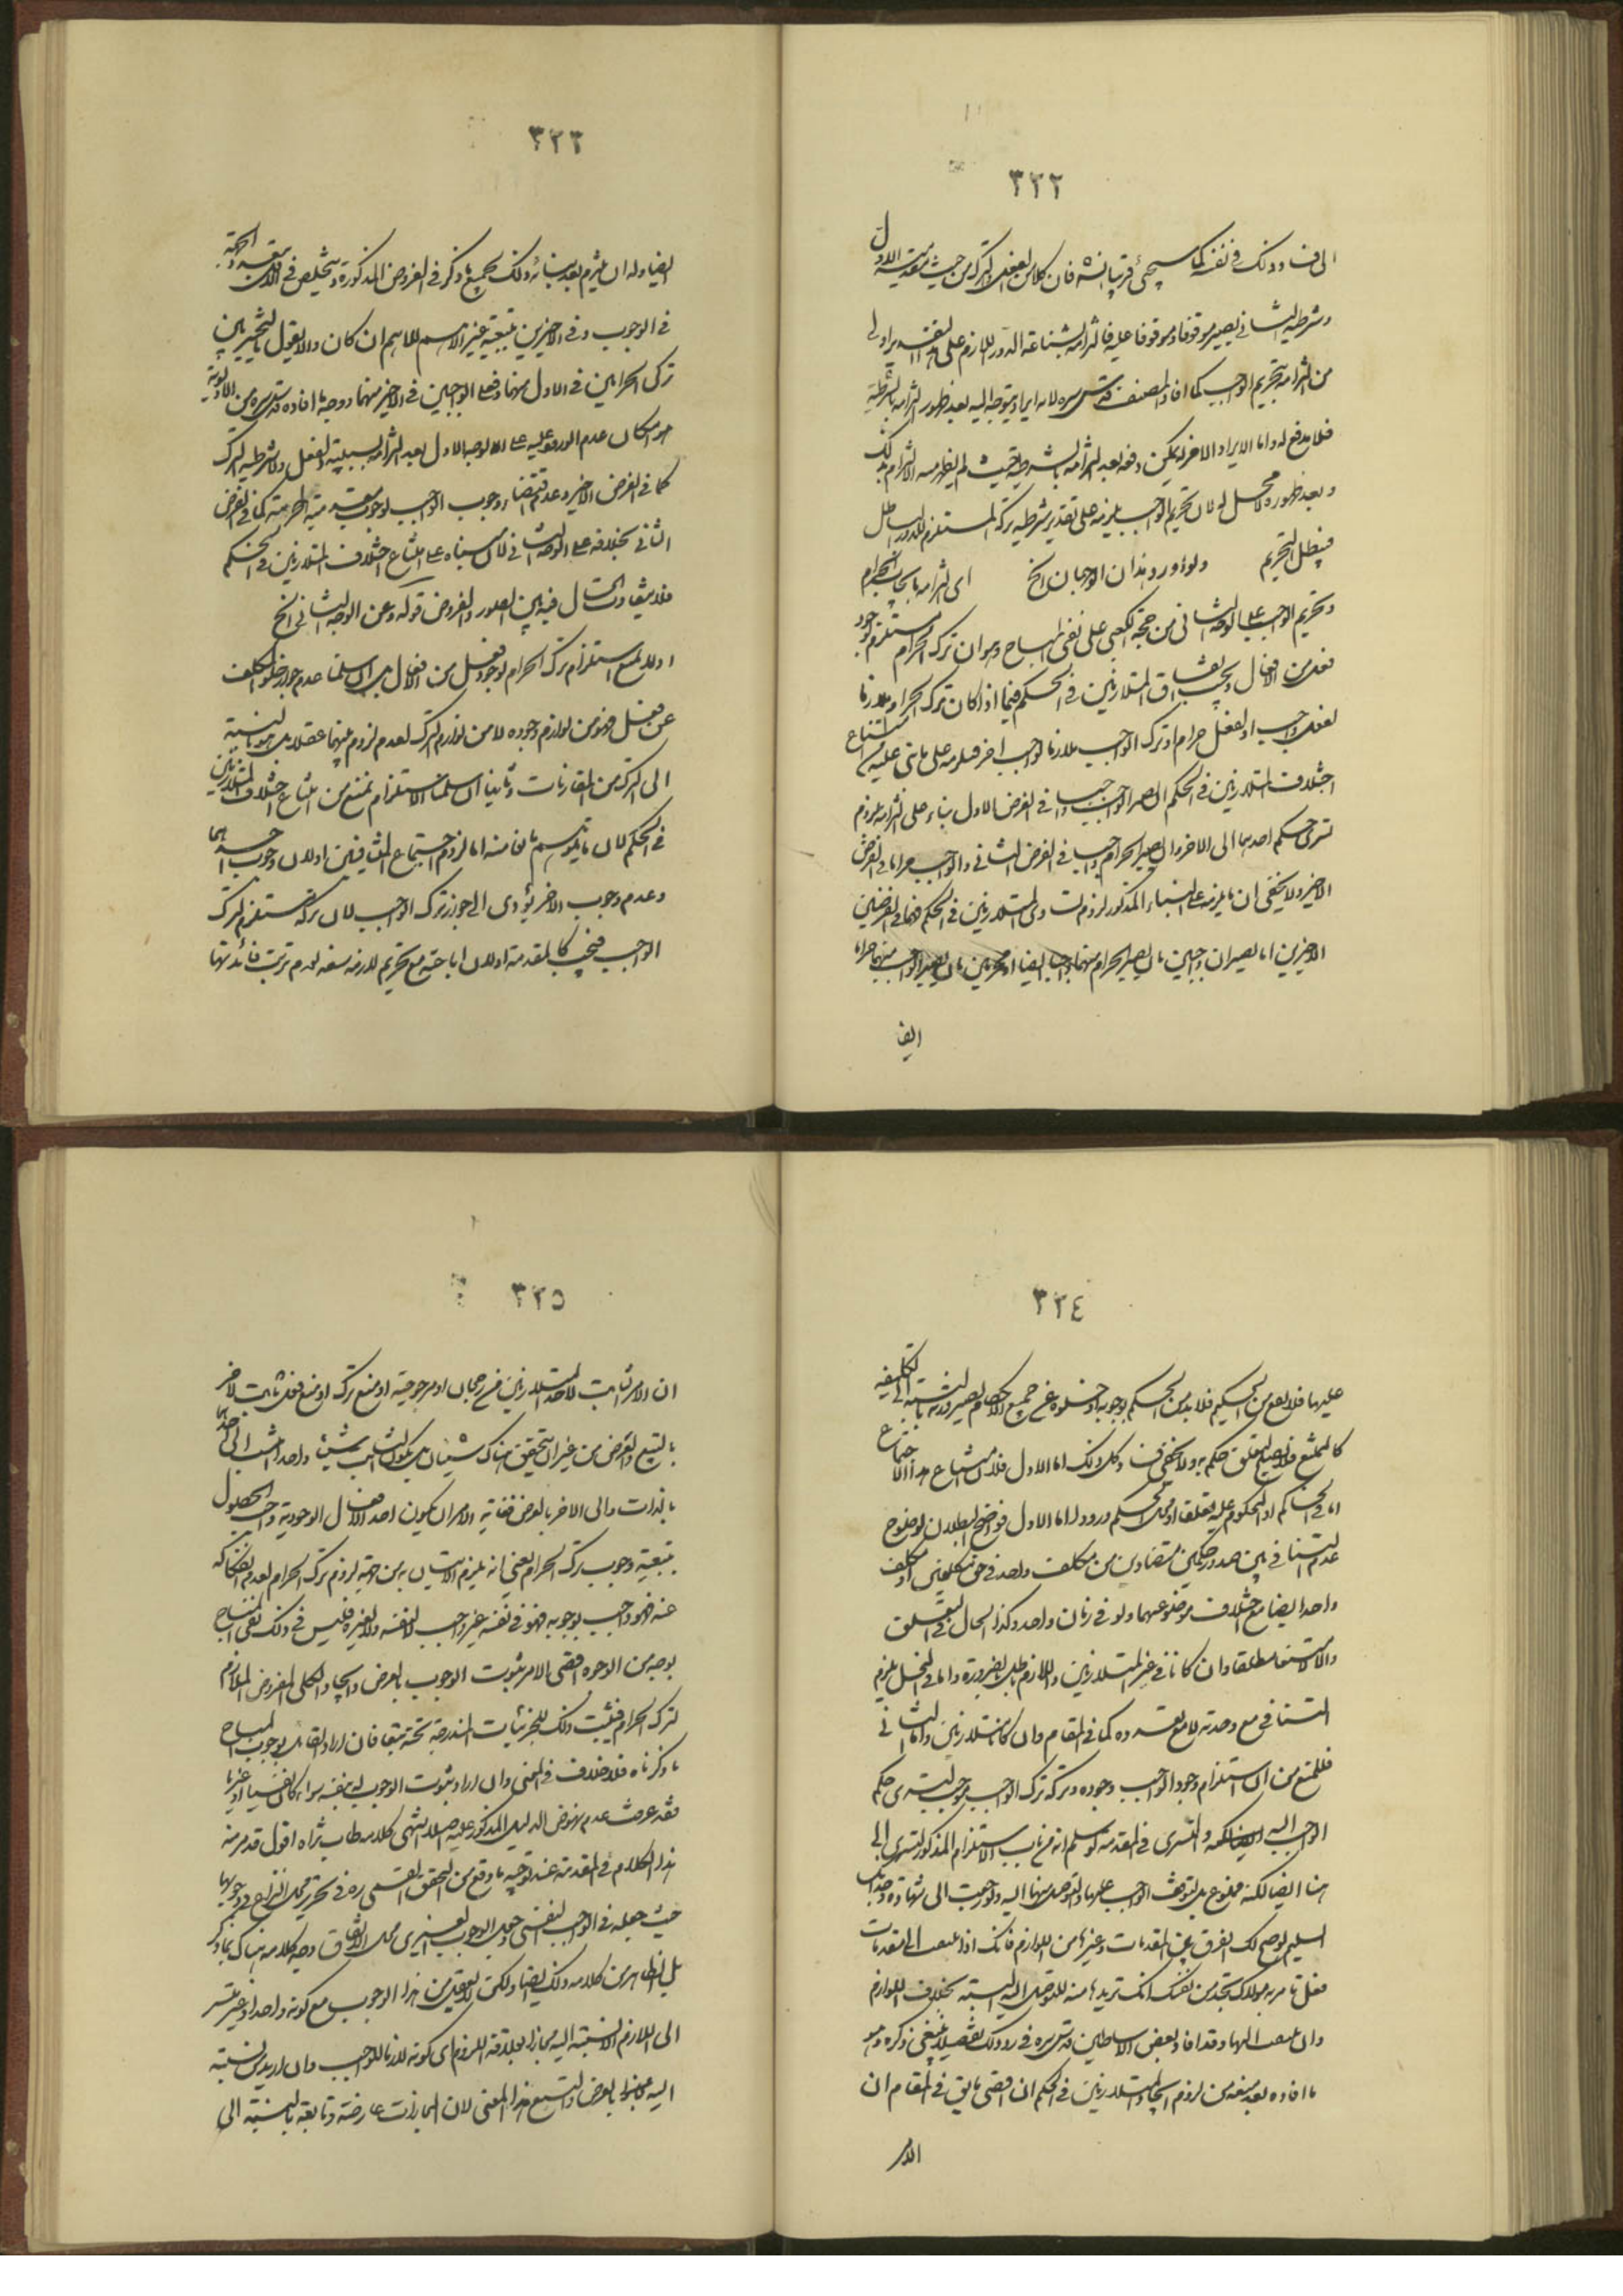 ٣٢٢
الى فساد ذلك في نفسه كما سيجيء قريبا انشه فان كلا من الفعل والترك من حيث مقدمية الاول
وشرطية الثاني يصير موقوفا وموقوفا عليه فالتزامه بشناعة الدور اللازم على هذا التقدير اولى
من التزامه بتحريم الواجب كما افاد المصنف قدس سره لانه ايراد يتوجه اليه بعد ظهور التزامه بالشرطية
فلا مدفع له واما الايراد الاخر فيمكن دفعه بعد التزامه بالشرطية بحيث لم يظهر منه الالتزام بذلك
وبعد ظهوره لا محل له لان تحريم الواجب يلزمه على تقدير شرطية تركه المستلزم للدور الباطل
فيبطل التحريم ولو اورد هذان الوجهان الخ اى التزامه بايجاب الحرام
وتحريم الواجب على الوجه الثاني من حجة الكعبي على نفى المباح وهو ان ترك الحرام مستلزم لوجود
فعل من الافعال ويجب اتفاق المتلازمين في الحكم فيما اذا كان ترك الحرام ملازما
لفعل واجب او لفعل حرام او ترك الواجب ملازما لواجب اخر فيلزمه على ما بنى عليه من امتناع
اختلاف المتلازمين في الحكم ان يصير الواجب واجبا في الفرض الاول بناء على التزامه بلزوم
تسرى حكم احدهما الى الاخر وان يصير الحرام واجبا في الفرض الثاني والواجب حراما في الفرض
الاخير ولا يخفى ان ما يلزمه على البناء المذكور لزوم تساوى المتلازمين في الحكم فهما في الفرضين
الاخيرين اما يصيران واجبين بان يصير الحرام منهما واجبا ايضا او محرمين بان يصير الواجب منهما حراما
ايضا
٣٢٣
ايضا وله ان يلتزم بعد بنائه ذلك بجميع ما ذكر في الفروض المذكورة ويتخلص في الاول
في الوجوب وفي الاخيرين بتبعية غير الاهم للاهم ان كان والا يقول بالتخيير بين
ترك الحرامين في الاول منهما وفعل الواجبين في الاخير منهما ووجه ما افاده قدس سره من الاولوية
هو امكان عدم الورود عليه على الوجه الاول بعد التزامه بسببية الفعل ولا شرطية الترك
كما في الفرض الاخير وعدم اقتضاء وجوب الواجب لوجوب مقدمته المحرمة كما في الفرض
الثاني بخلافه على الوجه الثاني لان مبناه على امتناع اختلاف المتلازمين في الحكم
فلا يتفاوت الحال فيه بين الصور والفروض قوله وعن الوجه الثاني الخ
اولا بمنع استلزام ترك الحرام لوجود فعل من الافعال بل ان سلمنا عدم جواز خلو المكلف
عن فعل فهو من لوازم وجوده لا من لوازم الترك لعدم لزوم بينهما عقلا بل هو بالنسبة
الى الترك من المقارنات وثانيا ان سلمنا الاستلزام نمنع من امتناع اختلاف المتلازمين
في الحكم لان ما يتوهم مانعا منه اما لزوم اجتماع المتنافيين او لان وجوب احدهما
وعدم وجوب الاخر يؤدى الى جواز ترك الواجب لان تركه مستلزم لترك
الواجب فيجب كالمقدمة او لان اباحته مع تحريم لازمه سفه لعدم ترتب فائدتها
٣٢٤
عليها فلا يقع من الحكيم فلا بد من الحكم بوجوبه او خلوه عن جميع الاحكام لصيرورته بالنسبة الى التكليفية
كالممتنع فلا يصلح لتعلق حكم به ولا يخفى فساد كل ذلك اما الاول فلان امتناع هذا الاجتماع
اما في الحاكم او المحكوم عليه او متعلقا او محل الحكم ورود له اما الاول فواضح البطلان لوضوح
عدم التنافي بين صدور حكمين متضادين من مكلف واحد في حق مكلفين او مكلف
واحد ايضا مع اختلاف موضوعهما ولو في زمان واحد وكذا الحال في المتعلق
والا لامتنعا مطلقا وان كانا في غير المتلازمين واللازم باطل بالضرورة واما في المحل يلزم
التنافي مع وحدته لا مع تعدده كما في المقام وان كانا متلازمين واما الثاني
فللمنع من ان استلزام وجود الواجب وجوده وتركه ترك الواجب يوجب تسرى حكم
الواجب اليه والتسرى في المقدمة لو سلم انه من باب الاستلزام المذكور لتسرى الى
هنا ايضا لكنه ممنوع بل لتوقف الواجب عليها والتوصل منها اليه ولو رجعت الى شهادة وجدانك
السليم لوضح لك الفرق بين المقدمات وغيرها من اللوازم فانك اذا التفت الى مقدمات
فعل تامر به مولاك تجد من نفسك انك تريدها منه للتوصل اليه البتة بخلاف اللوازم
وان التفت اليها وقد افاد بعض الاساطين قدس سره في رد ذلك تفصيلا ينبغي ذكره وهو
ما افاده بعد منعه من لزوم اتحاد المتلازمين في الحكم ان اقصى ما يقال في المقام ان
الامر
٣٢٥
ان الامر ثابت لاحد المتلازمين من رجحان او مرجوحية او منع ترك او منع فعل ثابت للاخر
بالتبع والعرض من غير ان يتحقق هناك شيئان بل يكون الثابت شيئا واحدا ينسب الى احدهما
بالذات والى الاخر بالعرض فغاية الامر ان يكون احد الافعال الوجودية واجب الحصول
بتبعية وجوب ترك الحرام يعنى انه يلزم الاتيان به من جهة لزوم ترك الحرام لعدم انفكاكه
عنه فهو واجب بوجوبه فهو في نفسه غير واجب لا لنفسه ولا لغيره فليس في ذلك نفى المباح
بوجه من الوجوه اقصى الامر ثبوت الوجوب بالعرض واتحاد الكلى المفروض الملازم
لترك الحرام فيثبت ذلك للجزئيات المندرجة تحته تبعا فان اراد القائل بوجوب المباح
ما ذكرناه فلا خلاف في المعنى وان اراد ثبوت الوجوب له بنفسه سواء كان نفسيا او غيريا
فقد عرفت عدم نهوض الدليل المذكور عليه اصلا انتهى كلامه طاب ثراه اقول قد مر منه
هذا الكلام في المقدمة عند توجيه ما وقع من المحقق القمى ره في تحرير محل النزاع في وجوبها
حيث جعله في الواجب النفسى وجعل الوجوب الغيرى محل الاتفاق ووجه كلامه هناك بما ذكر
بل الظاهر من كلامه ذلك ايضا ولكن لا يعقل من هذا الوجوب مع كونه واحدا وغير متسر
الى اللازم الا نسبته اليه مجازا بعلاقة اللزوم اى كونه لازما للواجب وان اريد من نسبته
اليه مجازا بالعرض والتبع هذا المعنى لان المجازات عارضة وتابعة بالنسبة الى